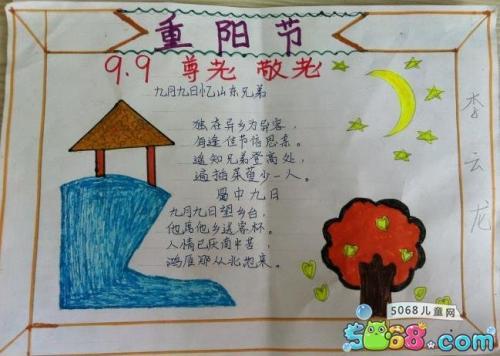 重阳节
9.9 尊老 敬老
九月九日忆山东兄弟
独在异乡为异客,
每逢佳节倍思亲。
遥知兄弟登高处,
遍插茱萸少一人。
蜀中九日
九月九日望乡台,
他席他乡送客杯。
人情已厌南中苦,
鸿雁那从北地来。
李云龙
5068儿童网
5068.com